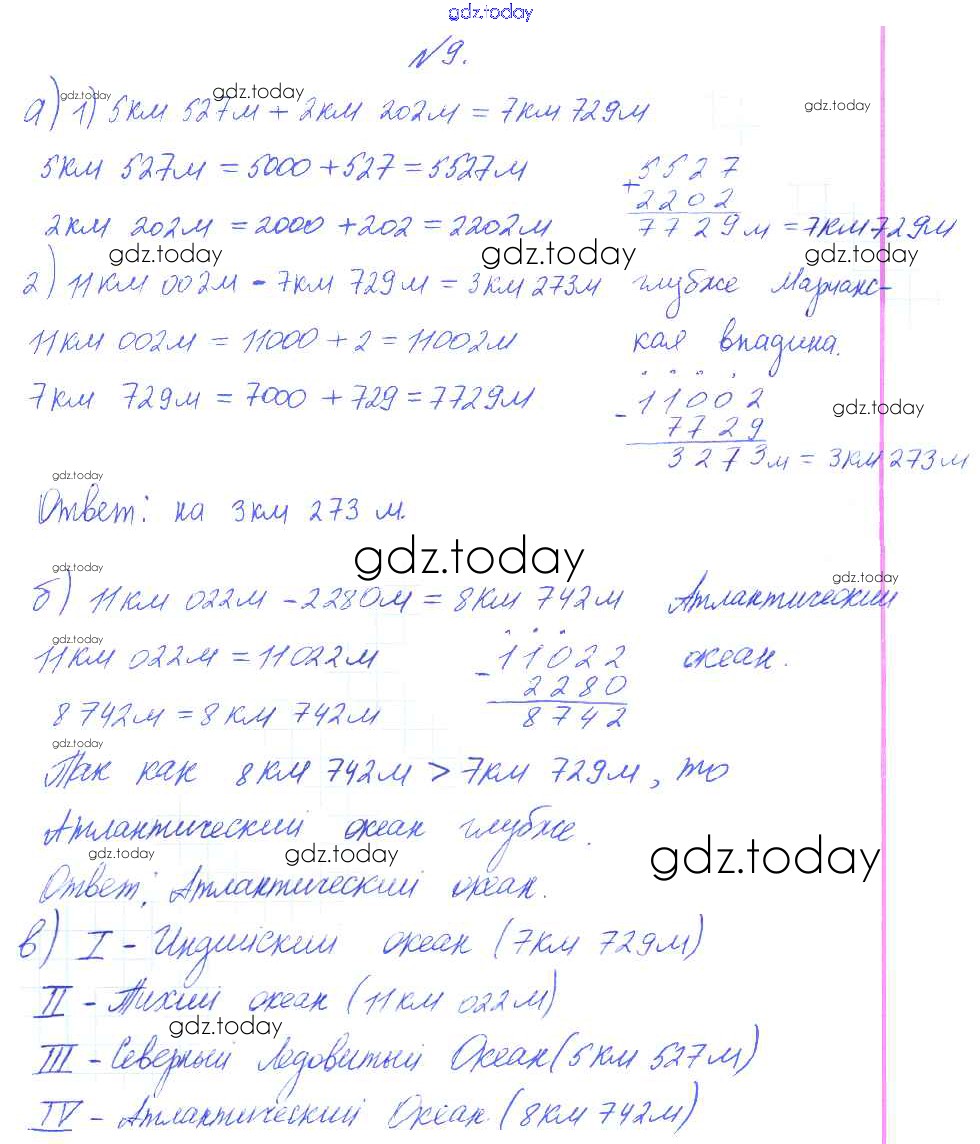 gdz.today
№9.
gdz.today
а) 1) 5км 527м + 2км 202м = 7км 729м gdz.today
5км 527м = 5000 + 527 = 5527м
2км 202м = 2000 + 202 = 2202м
+ 5527
2202
7729м = 7км 729м
gdz.today gdz.today gdz.today
2) 11км 002м - 7км 729м = 3км 273м глубже Марианс-
кая впадина.
11км 002м = 11000 + 2 = 11002м
7км 729м = 7000 + 729 = 7729м
- 11002
7729
3273м = 3км 273м
gdz.today
gdz.today
Ответ: на 3км 273 м.
gdz.today
gdz.today gdz.today
б) 11км 022м - 2280м = 8км 742м Атлантический
океан.
gdz.today
11км 022м = 11022м
- 11022
2280
8742
8742м = 8км 742м
gdz.today
Так как 8км 742м > 7км 729м, то
Атлантический океан глубже.
gdz.today gdz.today gdz.today
Ответ: Атлантический океан.
в) I - Индийский океан (7км 729м)
II - Тихий океан (11км 022м)
gdz.today
III - Северный Ледовитый Океан (5км 527м)
IV - Атлантический Океан (8км 742м)